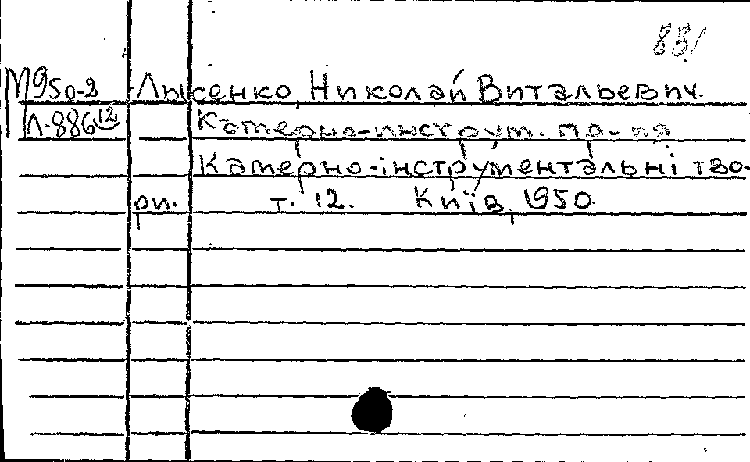 881
М950-2 Лысенко, Николай Витальевич.
Л-886 12 Камерно-инструм. пр-ия
Камерно-інструментальні тво-
ри. т. 12. Київ, 1950